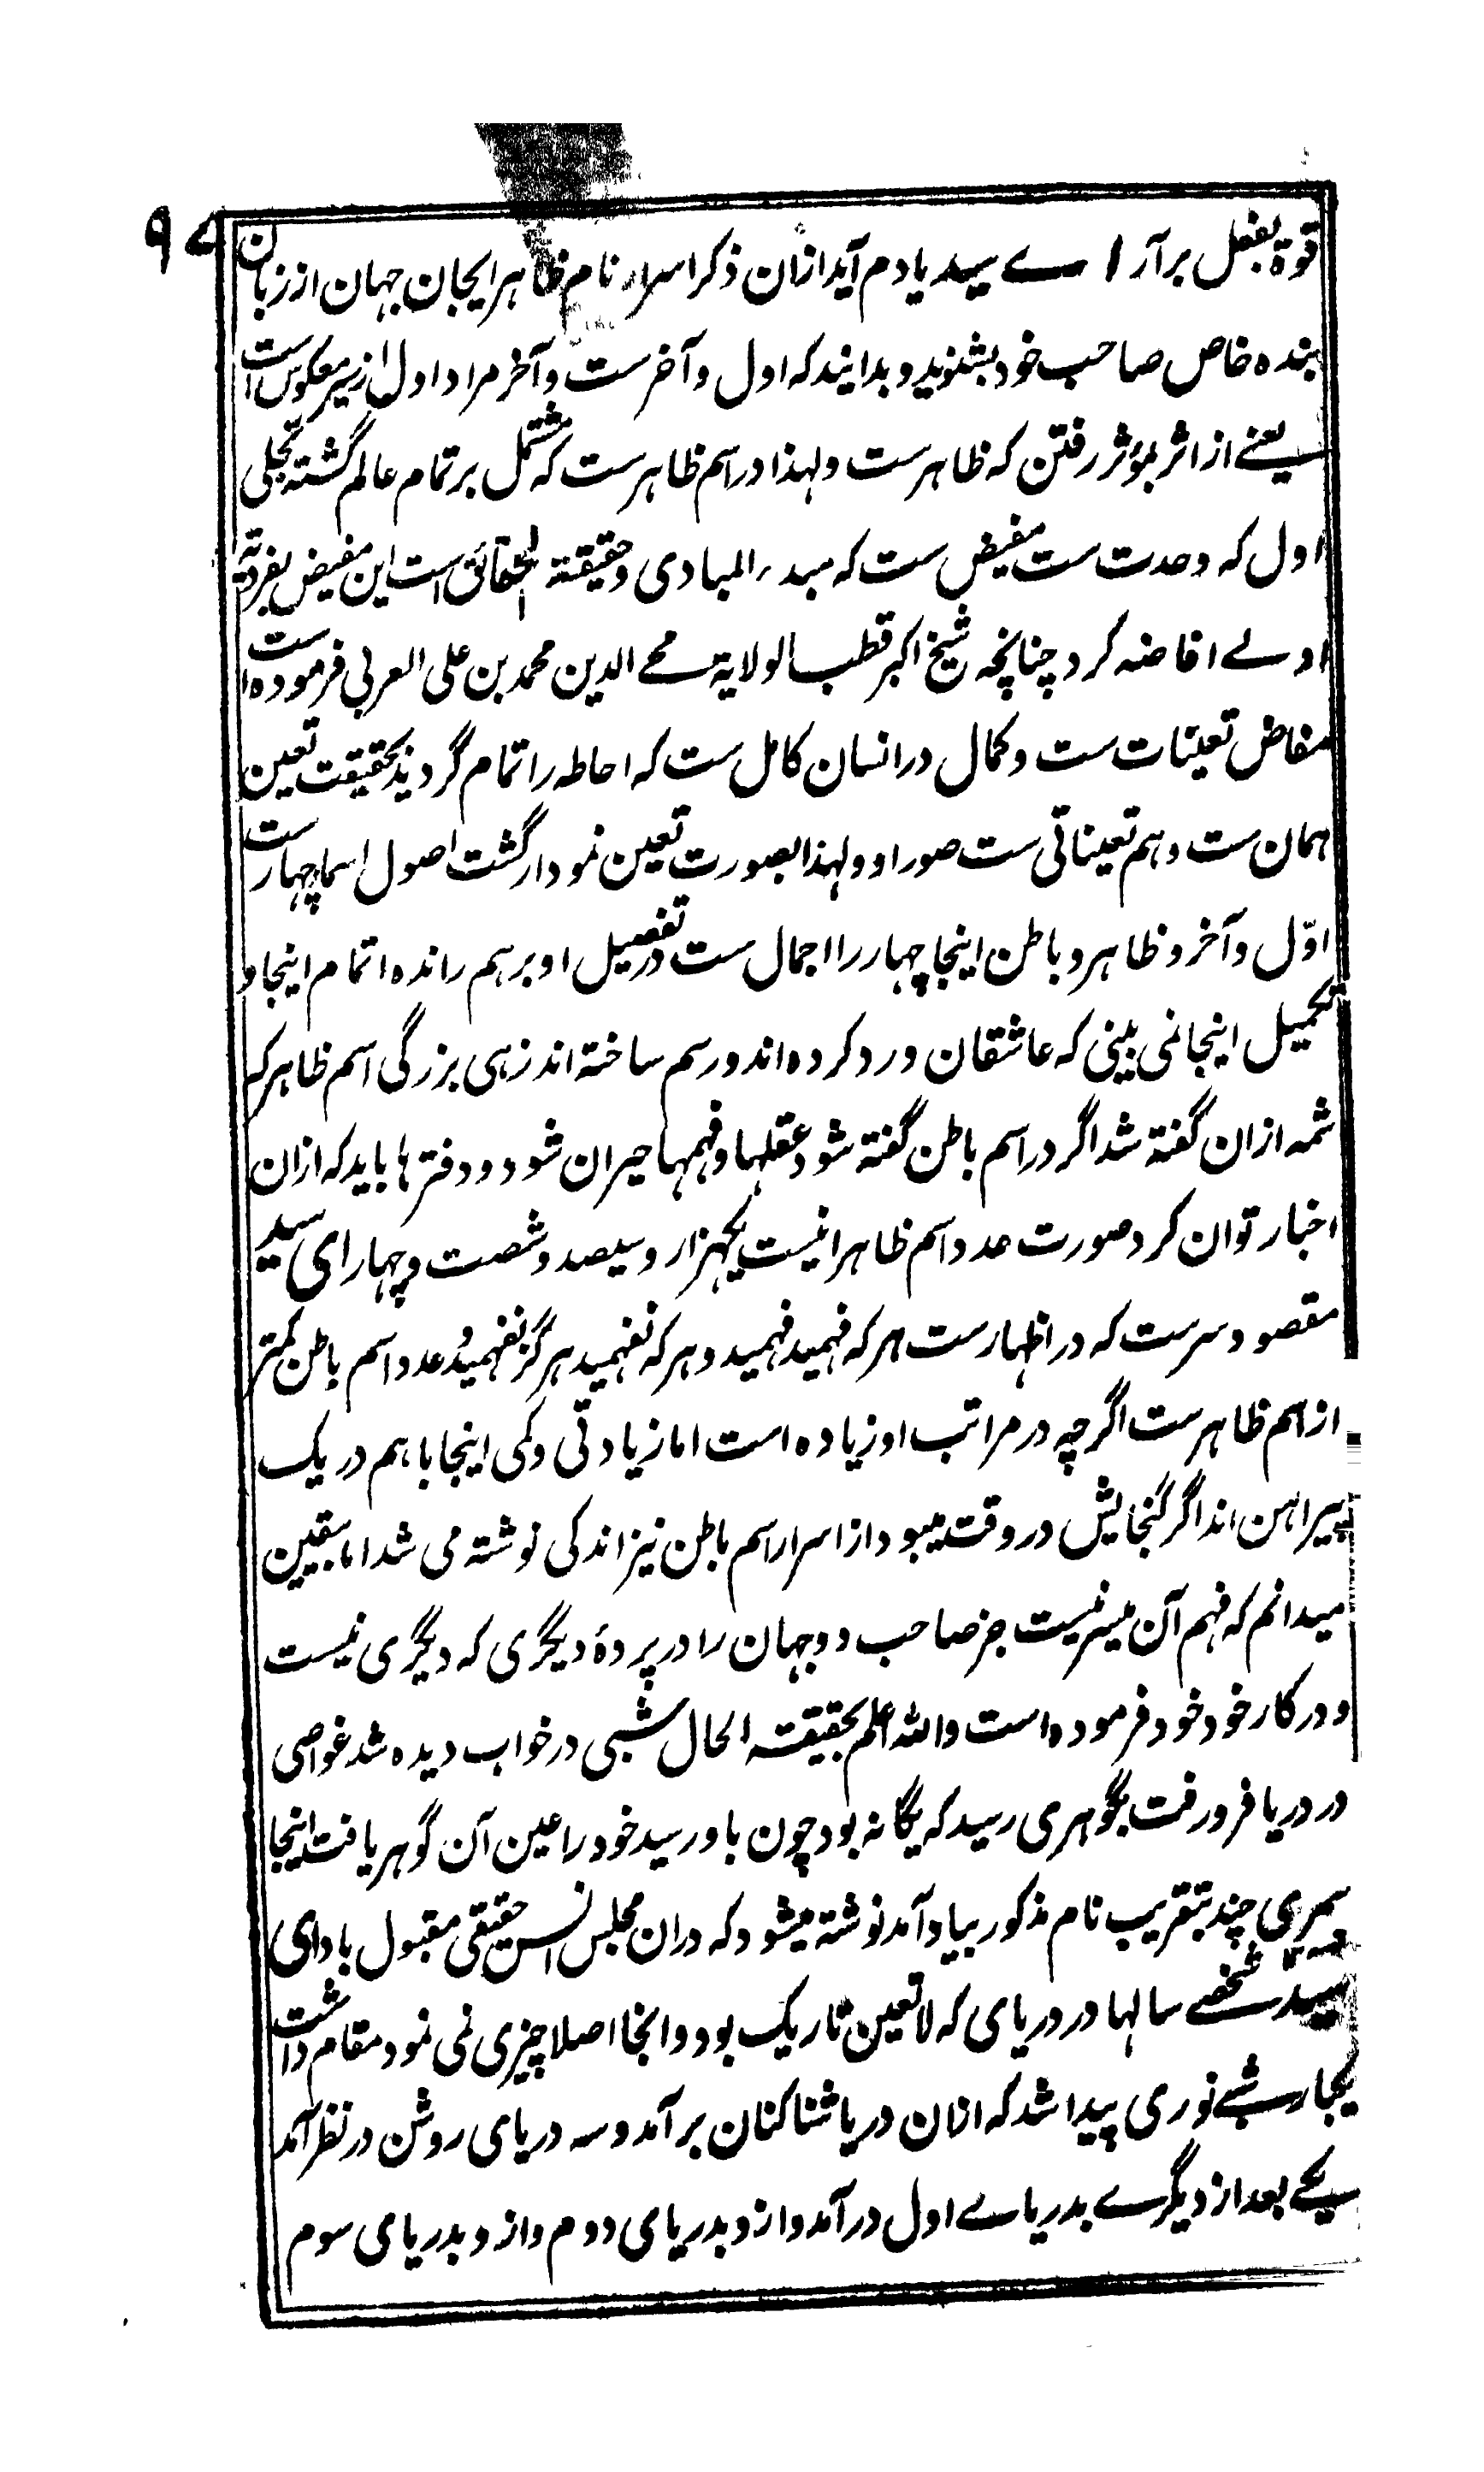 ۹۷
قوة بفعل برآر ای سید یادم آید ازان ذکر اسرار نام ظاهر ایجان جهان از زبان
بنده خاص صاحب خود بشنوید و بدانید که اول و آخرست و آخر مراد اول از سیر معکوس است
یعنے از اثر بمؤثر رفتن که ظاهرست ولهذا در اسم ظاهرست که مشتمل بر تمام عالم گشته تجلی
اول که وحدت ست مفیض ست که مبدء المبادی و حقیقة الحقائق است این مفیض بفردیة
اولے افاضه کرد چنانچه شیخ اکبر قطب الولایة محے الدین محمد بن علی العربی فرموده است
مفاض تعینات ست و کمال در انسان کامل ست که احاطه را تمام گردید بحقیقت تعین
همان ست و هم تعیناتی ست صور او ولهذا بصورت تعین نمودار گشت اصول اسما چهارست
اوّل و آخر و ظاهر و باطن اینجا چهار را اجمال ست در تفصیل او برهم رانده اتمام اینجا و
تکمیل اینجا نمی بینی که عاشقان ورد کرده اند و رسم ساخته اند زهی بزرگی اسم ظاهر که
شمه ازان گفته شد اگر در اسم باطن گفته شود عقلها و فهمها حیران شود و دفترها باید که ازان
اخبار توان کرد صورت عدد اسم ظاهر اینست یکهزار و سیصد و شصت و چهار ای سید
مقصود سرست که در اظهارست هر که فهمید فهمید و هر که نفهمید هرگز نفهمید و عدد اسم باطن کمتر
از اسم ظاهرست اگرچه در مراتب او زیاده است اما زیادتی و کمی اینجا با هم در یک
پیراهن اند اگر گنجایش در وقت میبود از اسرار اسم باطن نیز اندکی نوشته می شد اما بیقین
میدانم که فهم آن میسر نیست جز صاحب دو جهان را در پردهٔ دیگری که دیگری نیست
و در کار خود خود فرموده است والله اعلم بحقیقته الحال شبی در خواب دیده شد غواصی
در دریا فرو رفت بگوهری رسید که یگانه بود چون باو رسید خود را عین آن گوهر یافت اینجا
سری چند بتقریب نام مذکور بیاد آمد نوشته میشود که دران مجلس انس حقیقی مقبول باد ای
سید شخصے سالها در دریای که لا تعین تاریک بود و انجا اصلا چیزی نمی نمود مقام داشت
یکبار شبے نوری پیدا شد که ازان دریا شنا کنان برآمد و سه دریای روشن در نظر آمد
یکے بعد از دیگرے بدریاے اول درآمد و ازو بدریای دوم و ازو بدریای سوم